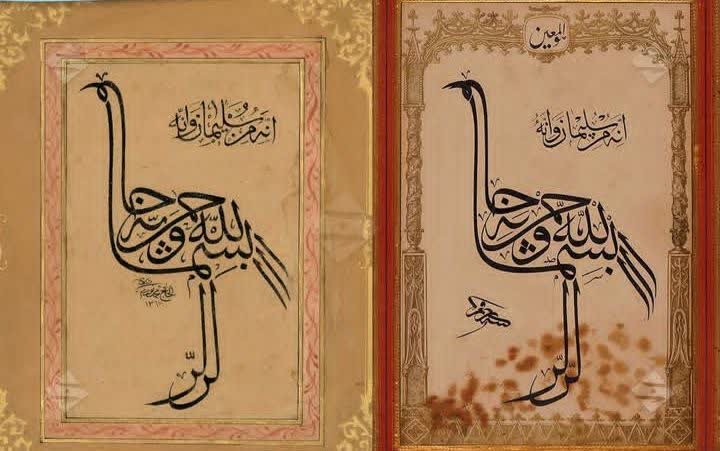 انه من سليمان وانه
بسم الله الرحمن الرحيم
هو المعين
انه من سليمان وانه
بسم الله الرحمن الرحيم